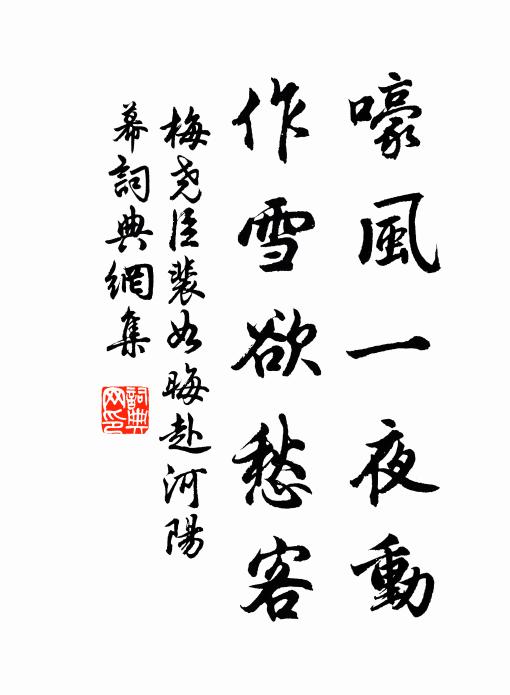 嚎風一夜動
作雪欲愁客
梅堯臣裴如晦赴河陽
幕詞典網集
詞典
网印